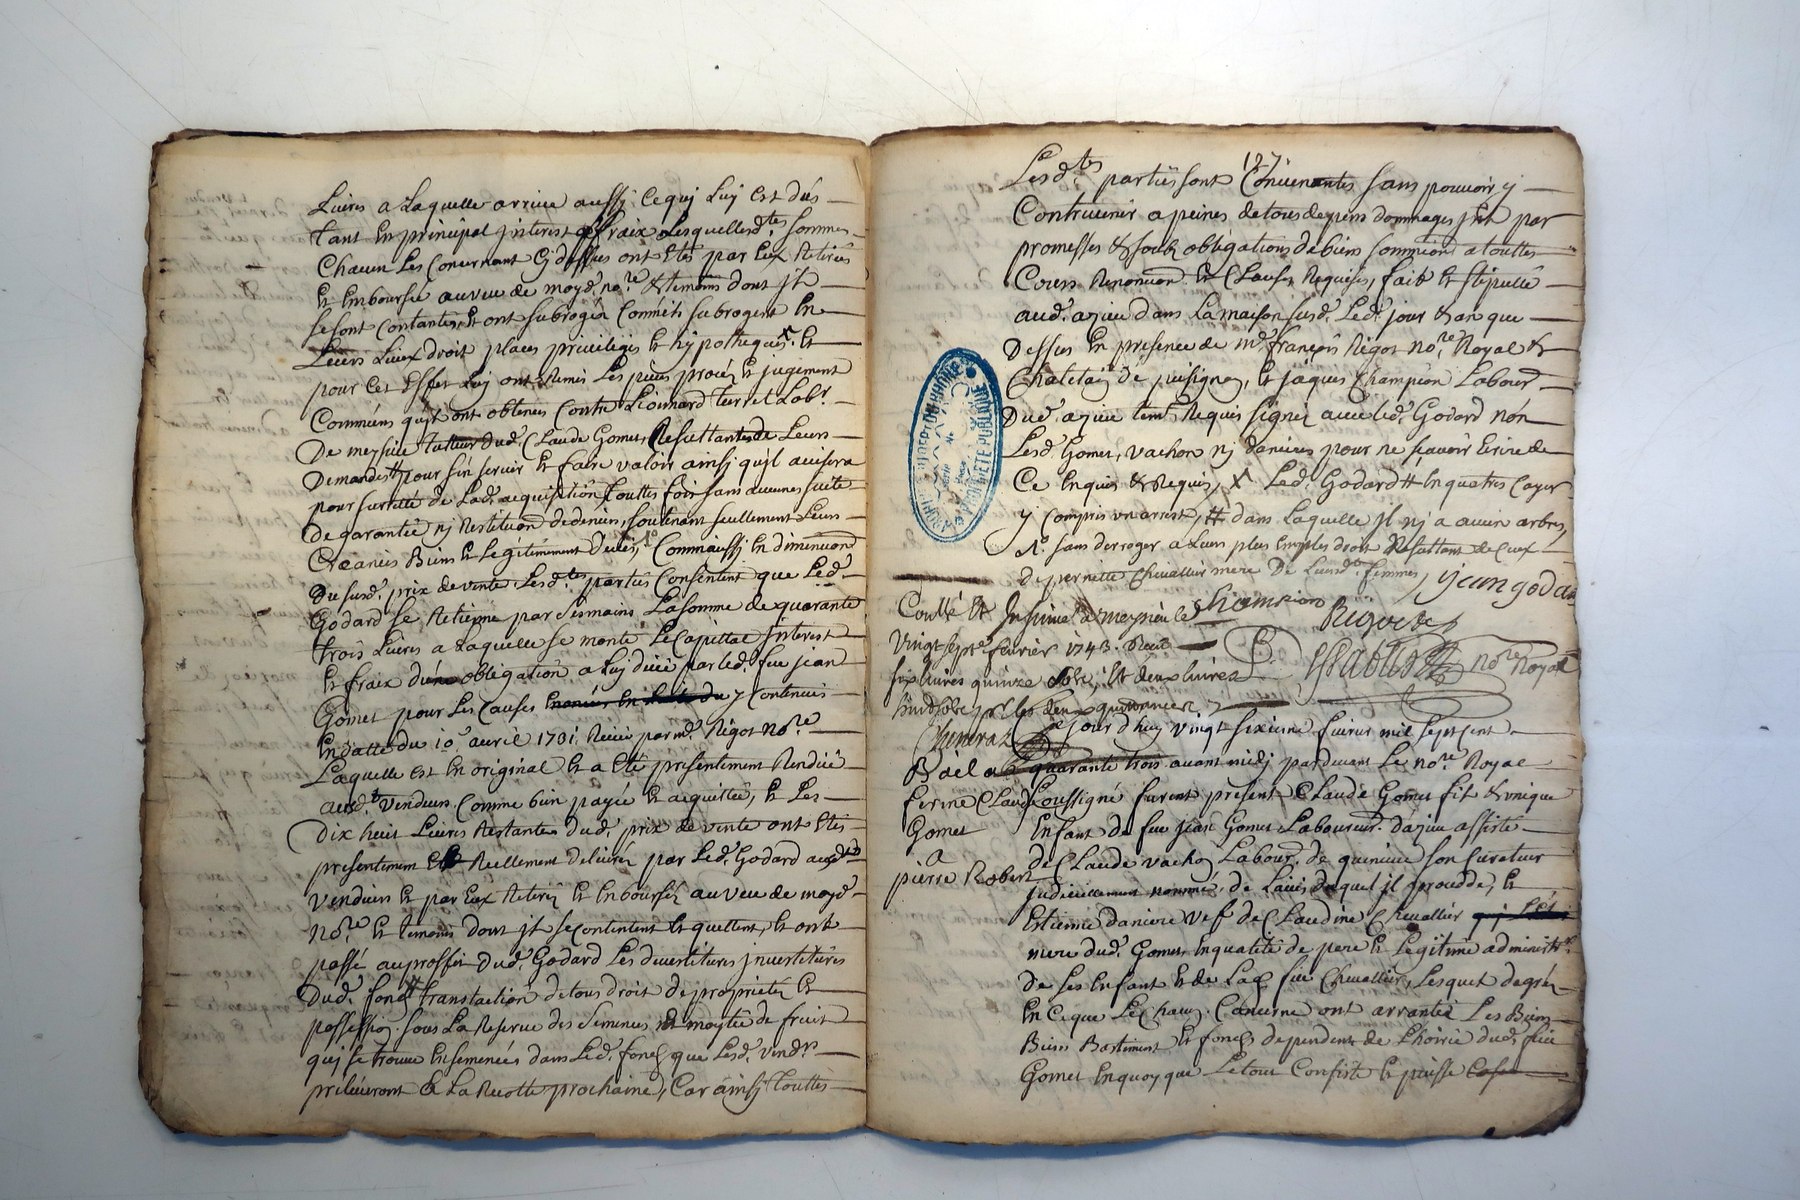 Livres a Laquelle arrive aussj ce quj Luy est dus
tant En principal jnterest & fraix Lesquelles d.tes sommes
Chacun Les Concernant Cy dessus ont Etés par Eux Retirés
Et Emboursée au veu de moyd. no.re & temoins dont jls
se sont Contantés, et ont subrogés Commes subrogent En
Leurs Lieux droit places privileges Et hypotheques X Et
pour Cet Effet Luy ont Remis Les pieces procés Et jugement
Commiens qu'jls ont obtenus Contre Leonnard Terret Lab.r
De meyssieu tutteur dud. Claude Gomet, Resultante de Leurs
Demandes # pour s'en servir Et faire valoir ainsj qu'jl avisera
pour surtetté de Lad. acquisition, touttes fois sans aucunes suite
De garantie nj Restituon de deniers, soutenant seullement Leurs
Creances Biens Et Legitimement Deues, Comm'aussj En diminuon
Du susd. prix de vente Lesd.tes parties Consentent que Led.
Godard se Retienne par ses mains La somme de quarante
trois Livres a Laquelle se monte Le Capittal jnterest
Et fraix d'une obligation a Luy düe par led. feu jean
Gomet pour Les Causes y Contenues
En datte du 10.e avril 1731. Receu par m.e Rigot No.re
Laquelle est En original Et a Eté presentement Rendüe
auxd.ts Vendeurs Comme bien payée Et acquittée, Et Les
Dix huit Livres Restantes dud. prix de vente ont Etés
presentement Et Reellement delivrés par Led. Godard auxd.ts
Vendeurs Et par Eux Retirés Et Emboursés au veu de moyd.
No.re Et temoins dont jls se Contentent Et quittent, Et ont
passé au proffit Dud. Godard Les devestitures jnvestitures
Dud. fonds # translaction de tous droit de propriétés Et
possession sous La Reserve des semences Et moytié de fruit
quj se trouve Ensemencés dans Led. fonds que Lesd. vend.rs
préleveront a La Recolte prochaine, Car ainsj touttes
127
Lesd.tes parties sont Convenantes sans pouvoir y
Contrevenir a peines de tous depens dommages jnt par
promesses & sous obligations de biens soumission a touttes
Cours Renonciaon & Clauses Requises, fait Et stipullé
aud. azieu dans La maison susd. Led. jour & an que
Dessus En presence de m.e françois Rigot No.re Royal &
Chatelain de jusigney, Et jaques Champion Labour.
Dud. azieu tem. Requis signés avec led. Godard non
Lesd. Gomet, vachon nj daniere pour ne sçavoir Ecrire de
Ce Enquis & Requis, X Led. Godard # En quatres Cayer
y Compris un arrest, # dans Laquelle jl nj a aucun arbres,
sans derroger a Leurs plus Emples droit Resultant de Ceux
de pernette Chevallier mere De Leursd.tes femmes,
jean godar
Champion
Rigot
no.re Royal
Conllé Et Insinué a meysieu le
vingt sept.e fevrier 1743. Receu
six livres quinze sols, Et deux livres
Chimeraz
Bail a
ferme Claude
Gomet
a
pierre Robert
jour d'huy vingt sixieme fevrier mil sept cent
quarante trois avant midj pardevant Le no.re Royal
soussigné furent present Claude Gomet fils & unique
Enfant de feu jean Gomet Laboureur d'azieu assisté
de Claude vachon Labour. de genieue son Curateur
judiciellement nommé, de L'avis duquel jl procedde, Et
Estienne daniere vef de Claudine Chevallier
mere dud. Gomet En qualité de pere Et Legitime administr.
De ses Enfant & de Lad. feu Chevallier, Lesquels de grés
En Ce que Le Chacun Concerne ont arrantés Les Biens
Biens Bastiment Et fonds dependents de L'hoirie dud. feu
Gomet En quoy que Le tout Consiste Et puisse